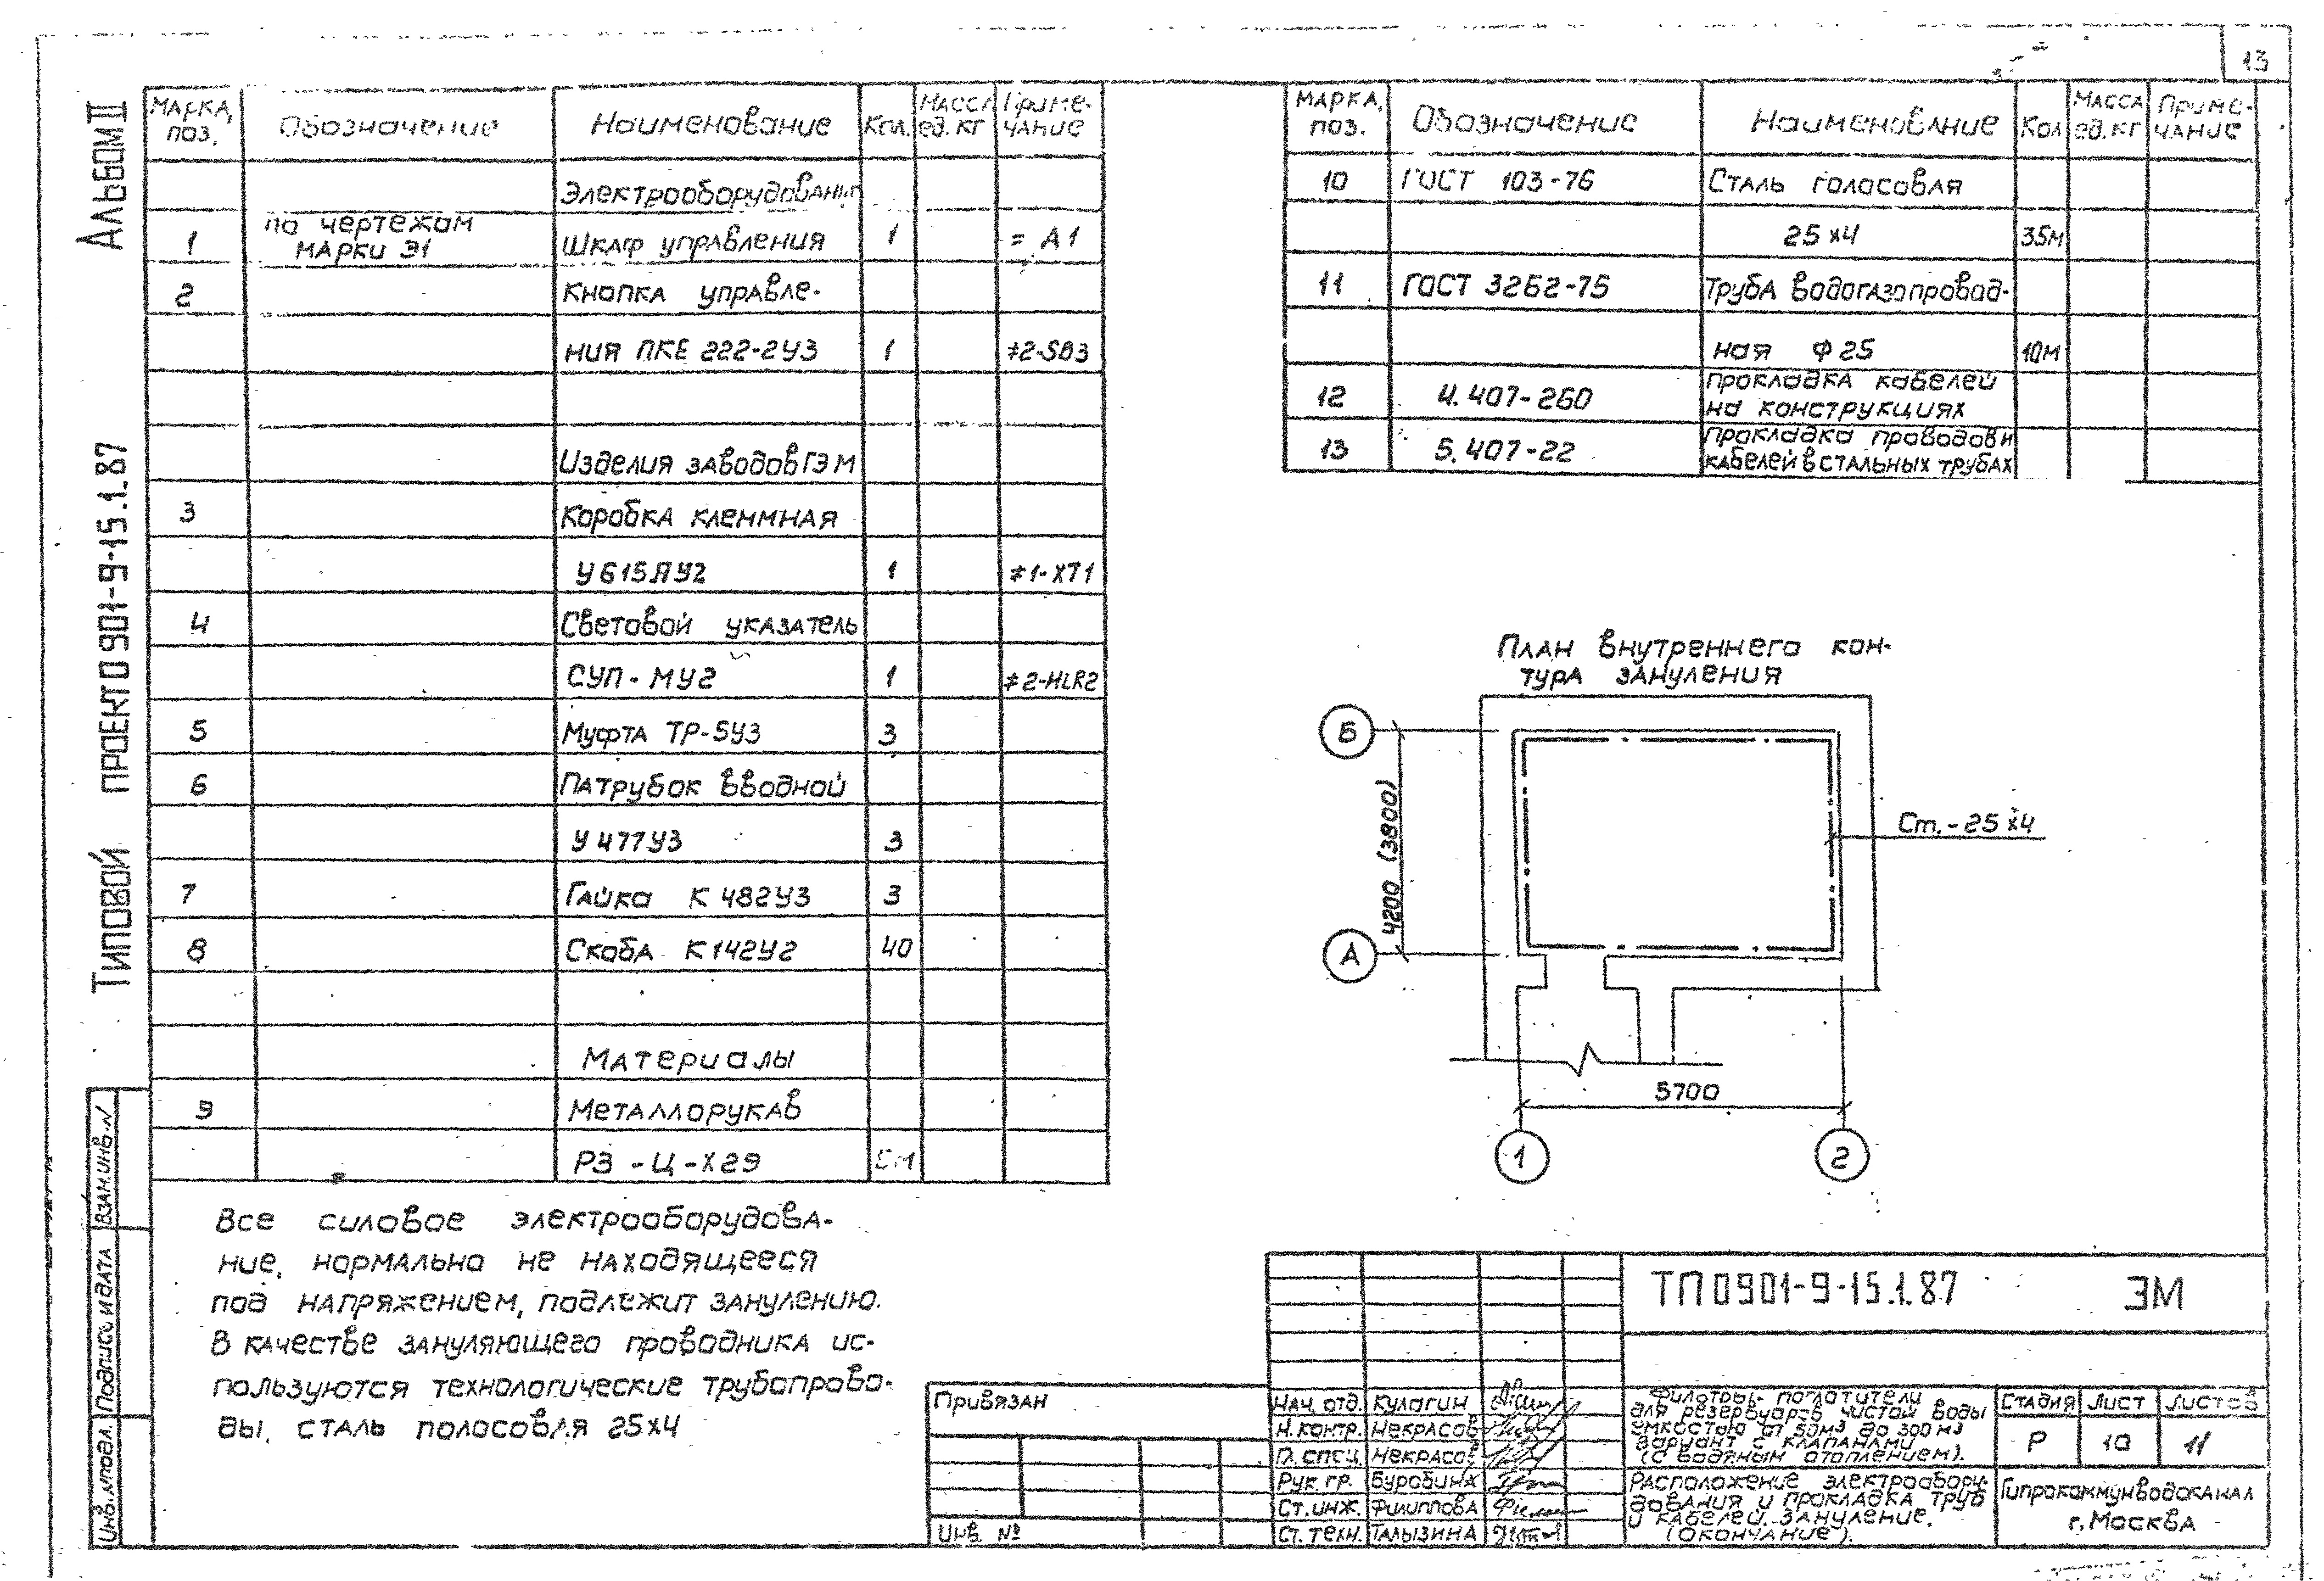 13
Альбом II
Типовой проект 0901-9-15.1.87
Марка, поз. Обозначение Наименование Кол. Масса ед. кг Приме-чание
Электрооборудование
1 по чертежам марки Э1 Шкаф управления 1 = А1
2 Кнопка управле-
ния ПКЕ 222-2У3 1 ≠2-SB3
Изделия заводов ГЭМ
3 Коробка клеммная
У615АУ2 1 ≠1-ХТ1
4 Световой указатель
СУП-МУ2 1 ≠2-HLR2
5 Муфта ТР-5У3 3
6 Патрубок вводной
У477У3 3
7 Гайка К482У3 3
8 Скоба К142У2 40
Материалы
9 Металлорукав
РЗ-Ц-Х29
Марка, поз. Обозначение Наименование Кол Масса ед. кг Приме-чание
10 ГОСТ 103-76 Сталь полосовая
25х4 35м
11 ГОСТ 3262-75 Труба водогазопровод-
ная Ф25 10м
12 4.407-260 Прокладка кабелей
на конструкциях
13 5.407-22 Прокладка проводов и
кабелей в стальных трубах
План внутреннего кон-
тура зануления
Б
А
4200 (3800)
Ст.-25х4
5700
1
2
Все силовое электрооборудова-
ние, нормально не находящееся
под напряжением, подлежит занулению.
В качестве зануляющего проводника ис-
пользуются технологические трубопрово-
ды, сталь полосовая 25х4
Взам. инв. N
Подпись и дата
Инв. N подл.
Привязан
Инв. №
Нач. отд. Кулагин
Н. контр. Некрасов
Гл. спец. Некрасов
Рук. гр. Буробина
Ст. инж. Филиппова
Ст. техн. Талызина
ТП 0901-9-15.1.87 ЭМ
Фильтры-поглотители
для резервуаров чистой воды
емкостью от 50м³ до 300м³
вариант с клапанами
(с водяным отоплением).
Стадия Лист Листов
Р 10 11
Расположение электрообору-
дования и прокладка труб
и кабелей. Зануление.
(Окончание).
Гипрокоммунводоканал
г. Москва